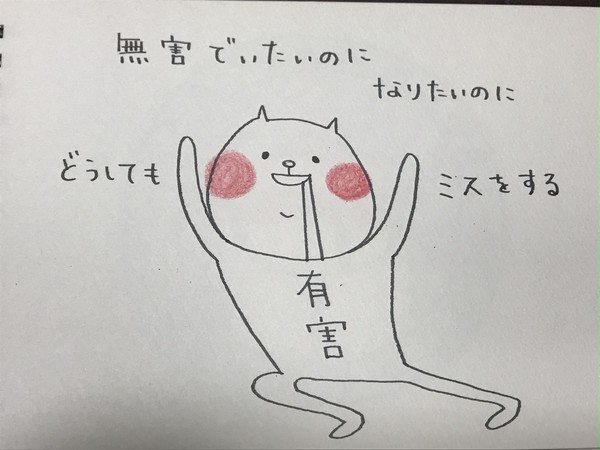 無害でいたいのに
なりたいのに
どうしても
ミスをする
有害